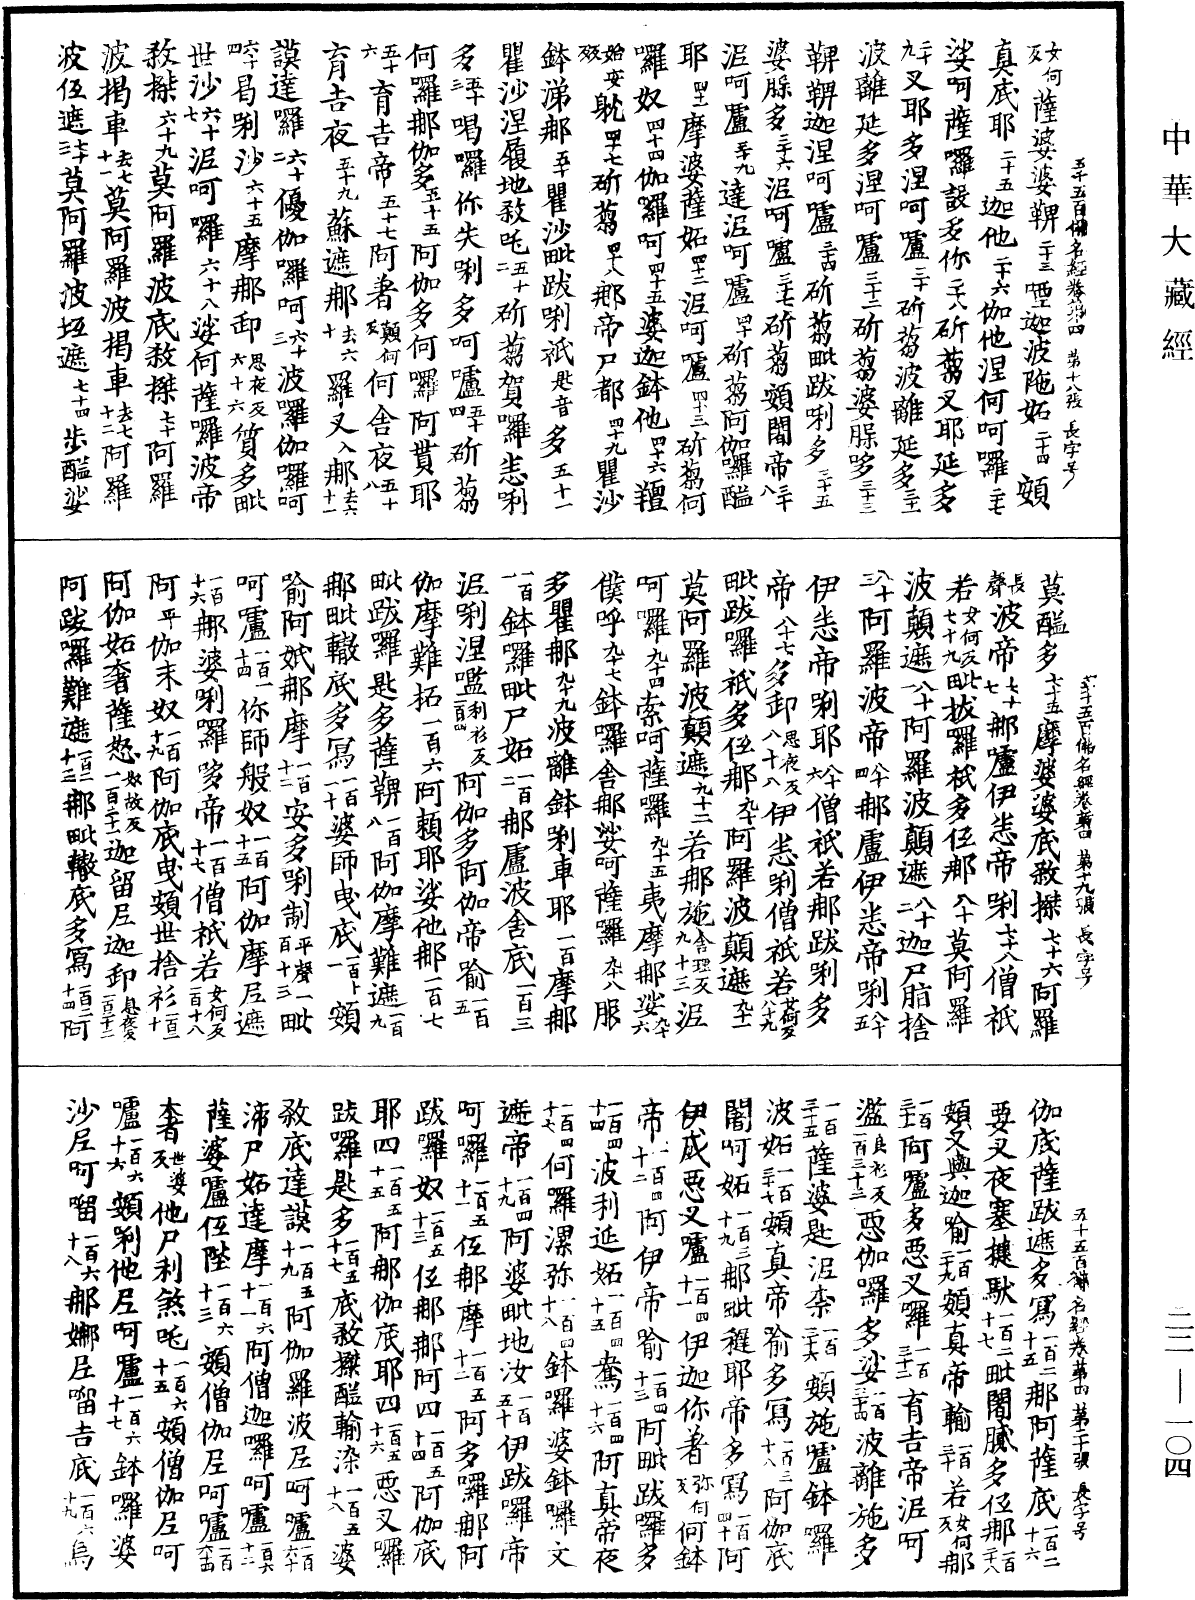 中華大藏經
二二—一〇四
五千五百佛名經卷第四 第十八張 長字号
女何反薩婆婆鞞二十三哩迦波陁妬二十四頞
真底耶二十五迦他二十六伽他涅何呵羅二十七
娑呵薩囉誐多你二十八斫蒭叉耶延多
二十九叉耶多涅呵盧三十斫蒭波離延多三十一
波離延多涅呵盧三十二斫蒭婆䐑哆三十三
鞞鞞迦涅呵盧三十四斫蒭毗跋唎多三十五
婆䐑多三十六泥呵嚧三十七斫蒭頞闇帝三十八
泥呵盧三十九達泥呵盧四十斫蒭阿伽囉醯
耶四十一摩婆薩妬四十二泥呵盧四十三斫蒭何
囉奴四十四伽羅呵四十五婆迦鉢他四十六羶
始安反躭四十七斫蒭四十八郍帝尸都四十九瞿沙
鉢涕郍五十瞿沙毗跋唎祇匙音多五十一
瞿沙涅履地敎吒五十二斫蒭賀囉恙唎
多五十三喝囉你失唎多呵嚧五十四斫蒭
何囉郍伽多五十五阿伽多何囉阿貫耶
五十六育吉帝五十七阿著顛何反何舍夜五十八
育吉夜五十九蘇遮郍去六十羅叉入郍去六十一
謨達囉六十二優伽囉呵六十三波囉伽囉呵
六十四曷唎沙六十五摩郍卸思夜反六十六質多毗
世沙六十七泥呵囉六十八娑何薩囉波帝
敎㨖六十九莫阿羅波底敎㨖七十阿羅
波揭車去七十一莫阿羅波揭車去七十二阿羅
波伍遮七十三莫阿羅波坘遮七十四步醯娑
五千五百佛名經卷第四 第十九張 長字号
莫醯多七十五摩婆婆底敎㨖七十六阿羅
長聲波帝七十七郍盧伊恙帝唎七十八僧祇
若女何反七十九毗拔羅祇多伍郍八十莫阿羅
波顛遮八十一阿羅波顛遮八十二迦尸脂捨
八十三阿羅波帝八十四郍盧伊恙帝唎八十五
伊恙帝唎耶八十六僧祇若郍跋唎多
帝八十七多卸思夜反八十八伊恙唎僧祇若女何反八十九
毗跋羅祇多伍郍九十阿羅波顛遮九十一
莫阿羅波顛遮九十二若郍施舍理反九十三泥
呵囉九十四索呵薩囉九十五夷摩郍娑九十六
僕呼九十七鉢囉舍郍娑呵薩囉九十八服
多瞿郍九十九波離鉢唎車耶一百摩郍
一百一鉢羅毗尸妬一百二郍盧波舍底一百三
泥唎涅嚂利衫反一百四阿伽多阿伽帝喻一百五
伽摩難拓一百六阿賴耶娑他郍一百七
毗跋羅匙多薩鞞一百八阿伽摩難遮一百九
郍毗轍底多寫一百一十婆師曳底一百一十一頞
喻阿娬郍摩一百一十二安多唎制平聲一百一十三毗
呵盧一百一十四你師般奴一百一十五阿伽摩尼遮
一百一十六郍婆唎羅哆帝一百一十七僧祇若女何反一百一十八
阿平伽末奴一百一十九阿伽底曳頞世捨衫一百二十
阿伽妬奢薩怒奴故反一百二十一迦留尼迦卸息夜反一百二十二
阿跋羅難遮一百二十三郍毗轍底多寫一百二十四阿
五千五百佛名經卷第四 第二十張 長字号
伽底薩跋遮多寫一百二十五郍阿薩底一百二十六
要叉夜塞揵馱一百二十七毗闍膩多伍郍一百二十八
頞叉與迦喻一百二十九頞真帝輸一百三十若女何反郍
一百三十一阿盧多悪叉羅一百三十二育吉帝泥呵
濫良衫反一百三十三悪伽羅多娑一百三十四波離施多
一百三十五薩婆匙泥柰一百三十六頞施盧鉢囉
波妬一百三十七頞真帝喻多寫一百三十八阿伽底
闇呵妬一百三十九郍毗稚耶帝多寫一百四十阿
伊戍悪叉嚧一百四十一伊迦你著弥何反何鉢
帝一百四十二阿伊帝喻一百四十三阿毗跋羅多
一百四十四波利延妬一百四十五鴦一百四十六阿真帝夜
一百四十七何羅漯弥一百四十八鉢囉婆鉢囉文
遮帝一百四十九阿婆毗地汝一百五十伊跋囉帝
呵囉一百五十一伍郍摩一百五十二阿多囉郍阿
跋羅奴一百五十三伍郍郍阿四一百五十四阿伽底
耶四一百五十五阿郍伽底耶四一百五十六悪叉囉
跋羅匙多一百五十七底敎㨖醯輸染一百五十八婆
敎底達謨一百五十九阿伽羅波尼呵嚧一百六十
渧尸妬達摩一百六十一阿僧迦囉呵嚧一百六十二
薩婆盧伍陛一百六十三頞僧伽尼呵嚧一百六十四
李著世婆反他尸利煞吒一百六十五頞僧伽尼呵
嚧一百六十六頞利他尼呵盧一百六十七鉢囉婆
沙尼呵㗚一百六十八郍娜尼㗚吉底一百六十九烏